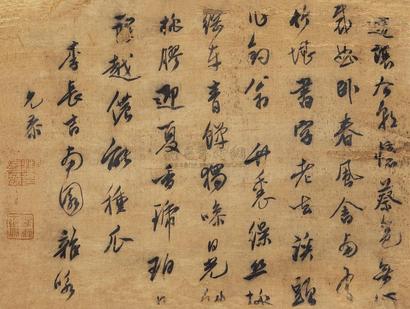 邊讓今朝憶蔡邕無心
裁曲卧春風舍南有
竹堪書字老去溪頭
作釣翁 竹裏繰絲挑
網車青蟬獨噪日光斜
桃膠迎夏香琥珀自
課越傭能種瓜
李長吉南園雜咏